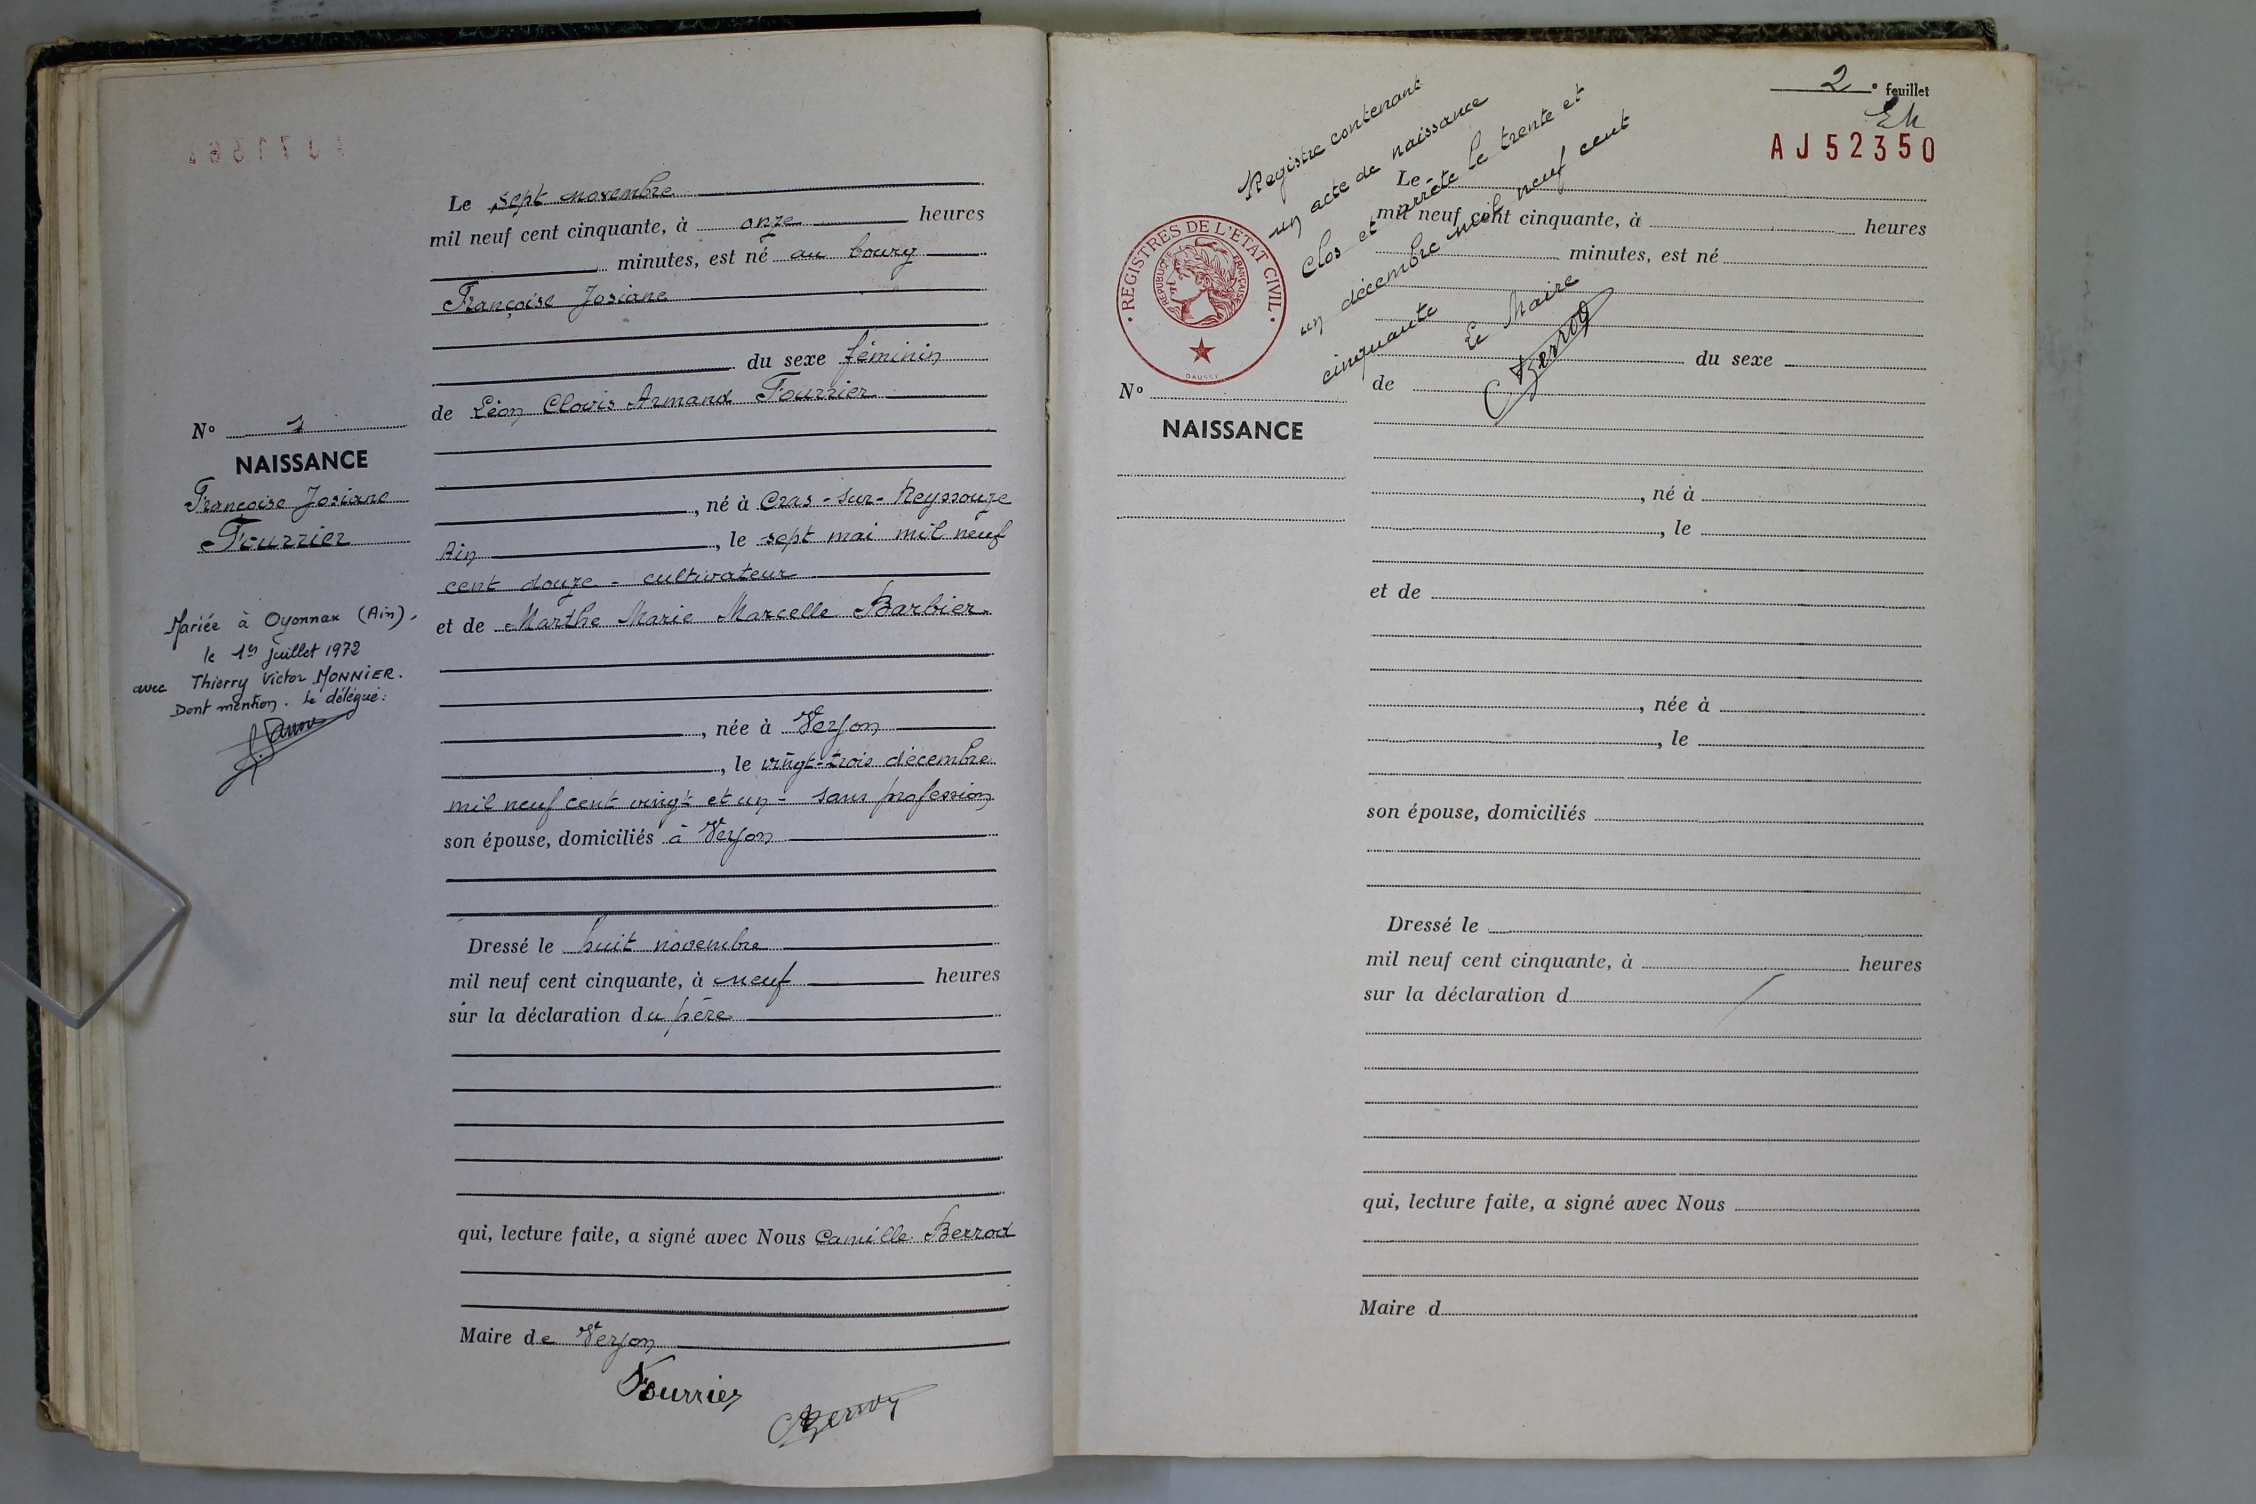 N° 1
NAISSANCE
Françoise Josiane
Fourrier
Mariée à Oyonnax (Ain).
le 1er juillet 1972
avec Thierry Victor MONNIER.
Dont mention. Le délégué:
Le sept novembre
mil neuf cent cinquante, à onze heures
minutes, est né au bourg
Françoise Josiane
du sexe féminin
de Léon Clovis Armand Fourrier
, né à Cras-sur-Reyssouze
Ain, le sept mai mil neuf
cent douze - cultivateur
et de Marthe Marie Marcelle Barbier
, née à Verjon
, le vingt-trois décembre
mil neuf cent vingt et un - sans profession
son épouse, domiciliés à Verjon
Dressé le huit novembre
mil neuf cent cinquante, à neuf heures
sur la déclaration du père
qui, lecture faite, a signé avec Nous Camille Berrod
Maire de Verjon
Fourrier
CBerrod
2e feuillet
AJ52350
Registre contenant
un acte de naissance
Clos et arrêté le trente et
un décembre mil neuf cent
cinquante
Le Maire
CBerrod
REGISTRES DE L'ÉTAT CIVIL
RÉPUBLIQUE FRANÇAISE
DAUSSY
N°
NAISSANCE
Le
mil neuf cent cinquante, à heures
minutes, est né
du sexe
de
, né à
, le
et de
, née à
, le
son épouse, domiciliés
Dressé le
mil neuf cent cinquante, à heures
sur la déclaration d
qui, lecture faite, a signé avec Nous
Maire d